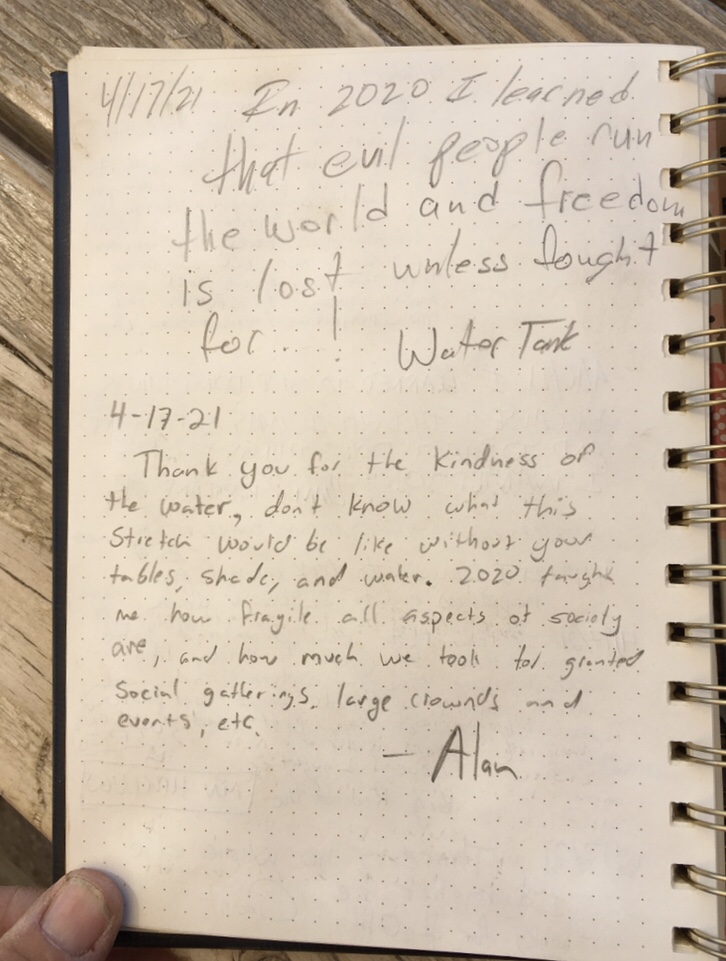 4/17/21 In 2020 I learned
that evil people run
the world and freedom
is lost unless fought
for. ! Water Tank
4-17-21
Thank you for the kindness of
the water, don't know what this
stretch would be like without your
tables, shade, and water. 2020 taught
me how fragile all aspects of society
are, and how much we took for granted
social gatherings, large crownds and
events, etc.
- Alan